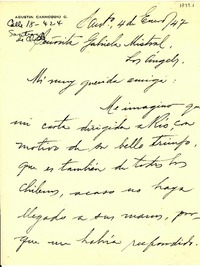 AGUSTIN CANNOBBIO G.
Calle 18-424
Sant. 4 de Enero/47
Señorita Gabriela Mistral,
Los Ángeles.
Mi muy querida amiga:
Me imagino que
mi carta dirigida a Río, con
motivo de su bello triunfo,
que es también de todos los
chilenos, acaso no haya
llegado a sus manos, por-
que no había respondido.